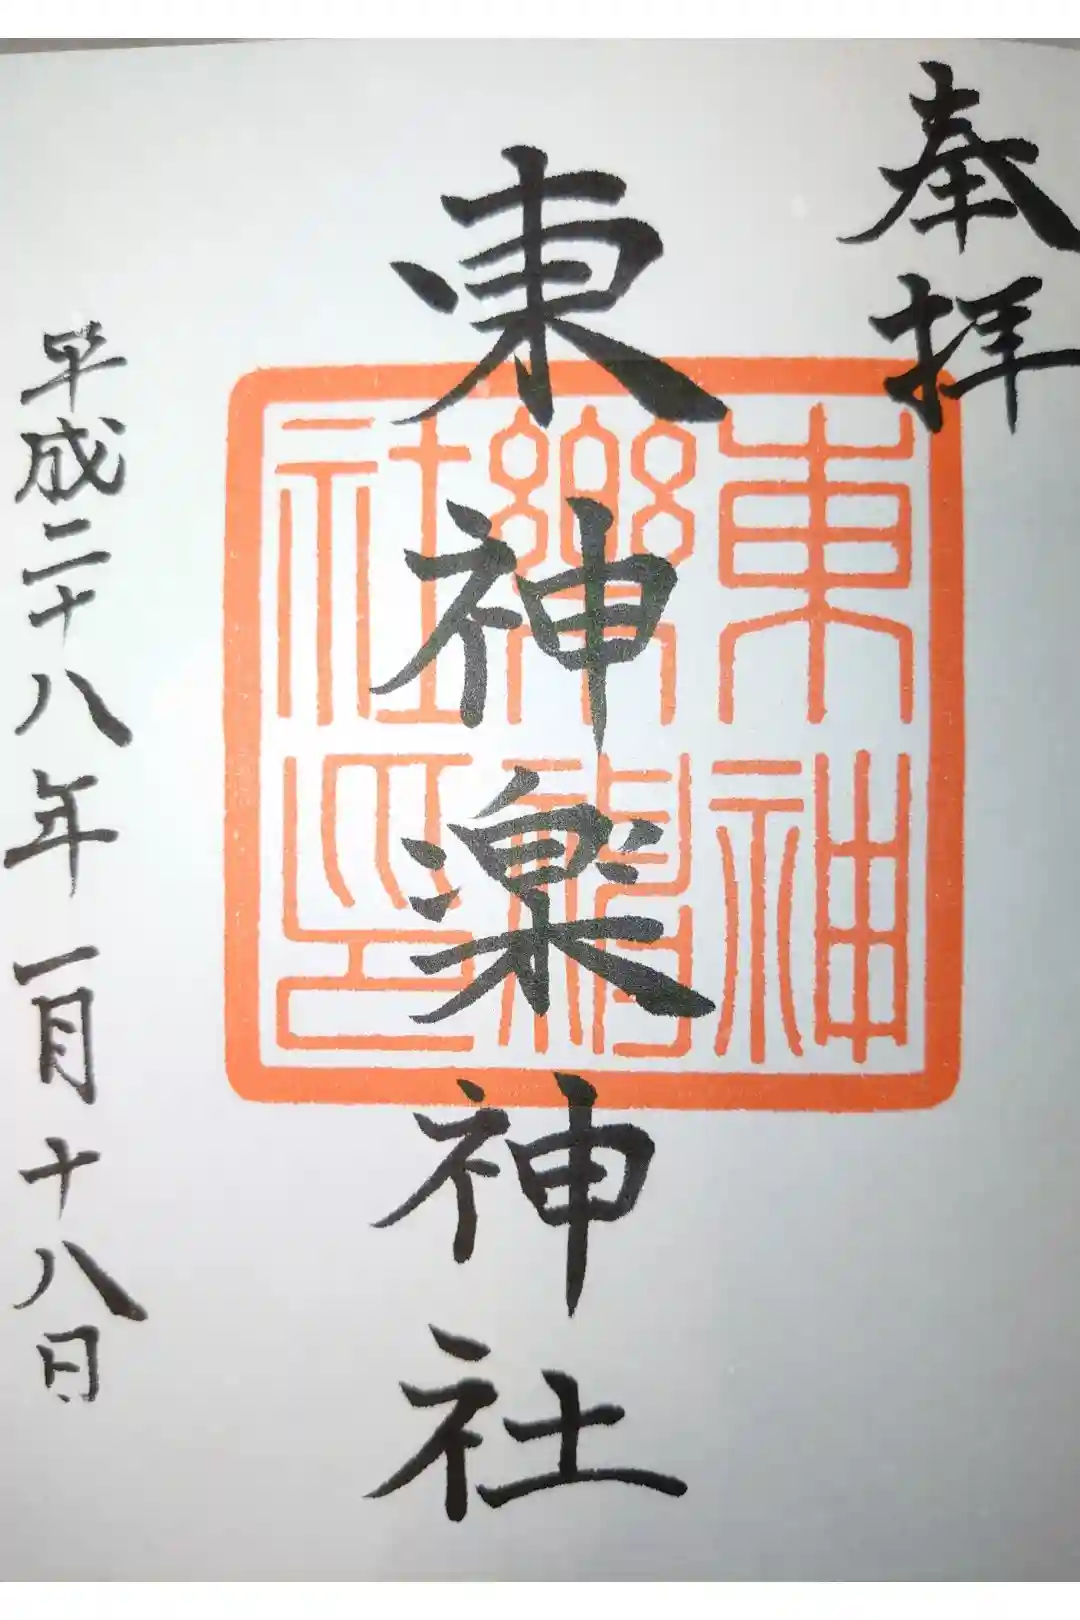 奉拝
東神楽神社
東神樂神社印
平成二十八年一月十八日